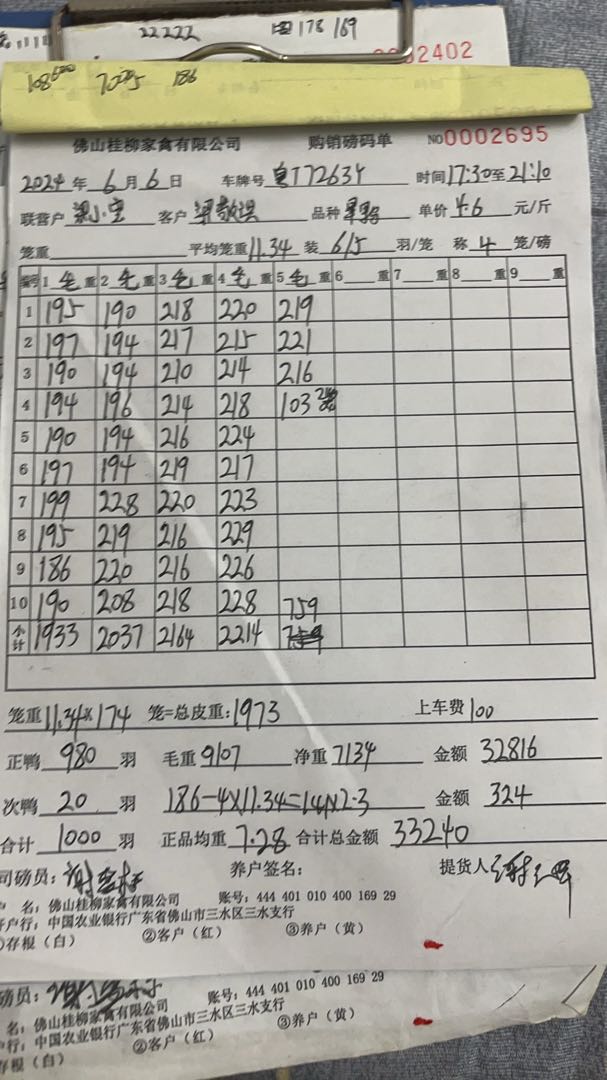 22222 178 169
0002402
108 7005 186
佛山桂柳家禽有限公司 购销磅码单 NO0002695
2024年6月6日 车牌号 T72634 时间17:30至21:10
联营户 梁小宝 客户 品种 单价4.6元/斤
笼重 平均笼重11.34 装6/5羽/笼 称4笼/磅
编号 1毛重 2毛重 3毛重 4毛重 5毛重 6重 7重 8重 9重
1 195 190 218 220 219
2 197 194 217 215 221
3 190 194 210 214 216
4 194 196 214 218 103
5 190 194 216 224
6 197 194 219 217
7 199 228 220 223
8 195 219 216 229
9 186 220 216 226
10 190 208 218 228 759
小计 1933 2037 2164 2214
笼重11.34×174笼=总皮重:1973 上车费100
正鸭980羽 毛重9107 净重7134 金额32816
次鸭20羽 186-4×11.34=141×2.3 金额324
合计1000羽 正品均重7.28 合计总金额33240
司磅员: 养户签名: 提货人
户 名:佛山桂柳家禽有限公司 账号:444 401 010 400 169 29
开户行:中国农业银行广东省佛山市三水区三水支行
①存根(白) ②客户(红) ③养户(黄)
磅员:
名:佛山桂柳家禽有限公司 账号:444 401 010 400 169 29
户行:中国农业银行广东省佛山市三水区三水支行
存根(白) ②客户(红) ③养户(黄)